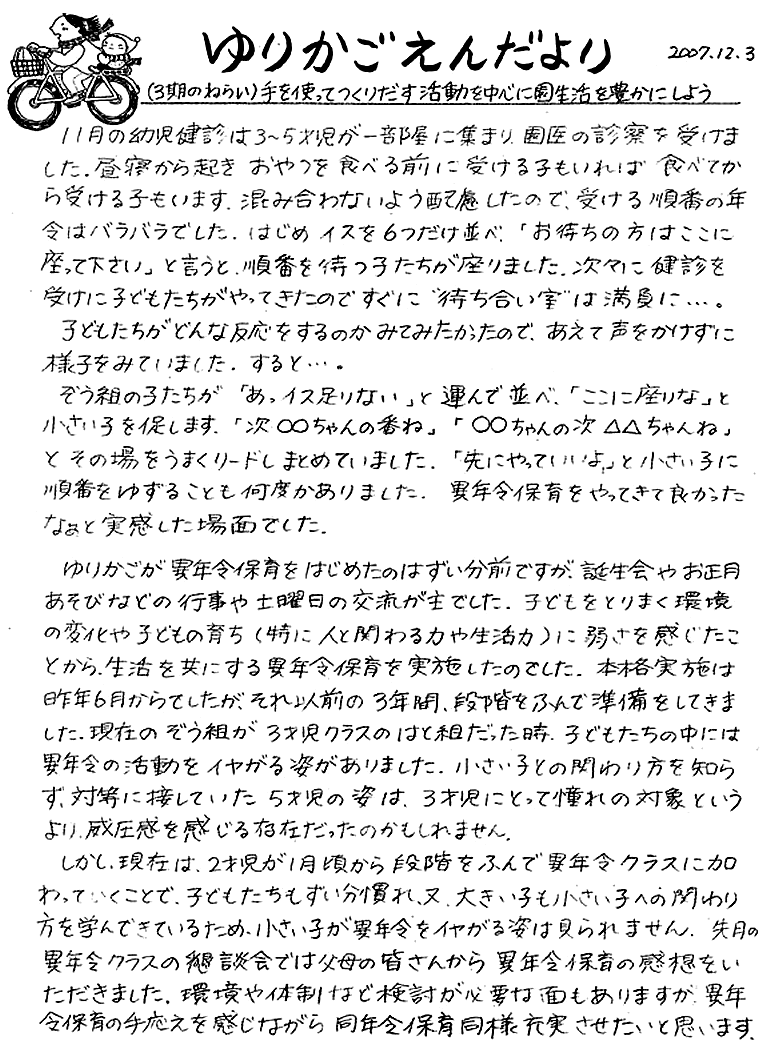 ゆりかごえんだより
2007.12.3
(3期のねらい)手を使ってつくりだす活動を中心に園生活を豊かにしよう
11月の幼児健診は3~5才児が一部屋に集まり、園医の診察を受けま
した。昼寝から起き おやつを食べる前に受ける子もいれば 食べてか
ら受ける子もいます。混み合わないよう配慮したので、受ける順番の年
令はバラバラでした。はじめイスを6つだけ並べ、「お待ちの方はここに
座って下さい」と言うと、順番を待つ子たちが座りました。次々に健診を
受けに子どもたちがやってきたのですぐに"待ち合い室"は満員に…。
子どもたちがどんな反応をするのかみてみたかったので、あえて声をかけずに
様子をみていました。すると…。
ぞう組の子たちが「あっイス足りない」と運んで並べ、「ここに座りな」と
小さい子を促します。「次〇〇ちゃんの番ね」「〇〇ちゃんの次△△ちゃんね」
とその場をうまくリードしまとめていました。「先にやっていいよ」と小さい子に
順番をゆずることも何度かありました。異年令保育をやってきて良かった
なぁと実感した場面でした。
ゆりかごが異年令保育をはじめたのはずい分前ですが、誕生会やお正月
あそびなどの行事や土曜日の交流が主でした。子どもをとりまく環境
の変化や子どもの育ち(特に人と関わる力や生活力)に弱さを感じたこ
とから、生活を共にする異年令保育を実施したのでした。本格実施は
昨年6月からでしたが、それ以前の3年間、段階をふんで準備をしてきま
した。現在のぞう組が3才児クラスのはと組だった時、子どもたちの中には
異年令の活動をイヤがる姿がありました。小さい子との関わり方を知ら
ず、対等に接していた5才児の姿は、3才児にとって憧れの対象という
より、威圧感を感じる存在だったのかもしれません。
しかし、現在は、2才児が1月頃から段階をふんで異年令クラスに加
わっていくことで、子どもたちもずい分慣れ、又、大きい子も小さい子への関わり
方を学んできているため、小さい子が異年令をイヤがる姿は見られません。先月の
異年令クラスの懇談会では父母の皆さんから異年令保育の感想をい
ただきました。環境や体制など検討が必要な面もありますが、異年
令保育の手応えを感じながら同年令保育同様充実させたいと思います。